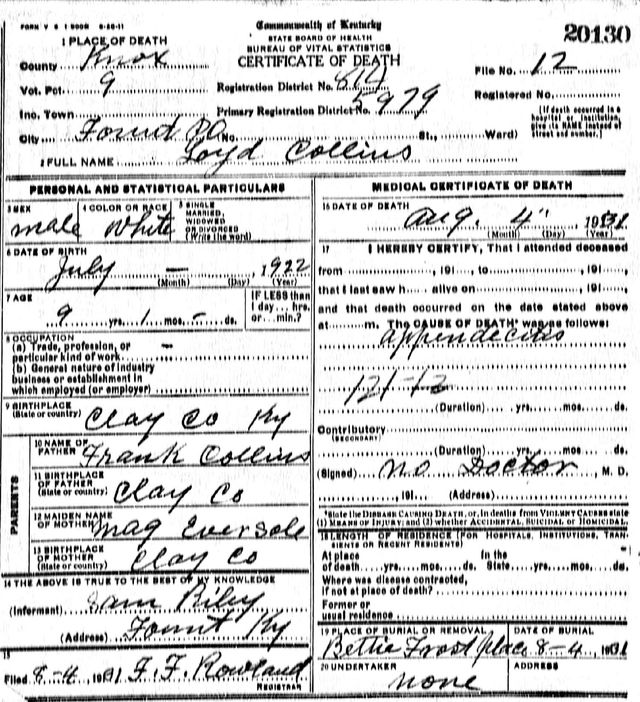 FORM V S 1 500M 8-26-11
Commonwealth of Kentucky
STATE BOARD OF HEALTH
BUREAU OF VITAL STATISTICS
CERTIFICATE OF DEATH
20130
1 PLACE OF DEATH
County Knox
Vot. Pct. 9
Inc. Town
City Fount PO No. St., Ward)
Registration District No. 814
Primary Registration District No. 5979
File No. 12
Registered No.
[If death occurred in a
hospital or institution,
give its NAME instead of
street and number.]
2 FULL NAME Loyd Collins
PERSONAL AND STATISTICAL PARTICULARS
3 SEX male
4 COLOR OR RACE White
5 SINGLE
MARRIED,
WIDOWED
OR DIVORCED
(Write the word)
6 DATE OF BIRTH
July — 1922
(Month) (Day) (Year)
7 AGE
9 yrs. 1 mos. - ds.
IF LESS than
1 day... hrs.
or... min.?
8 OCCUPATION
(a) Trade, profession, or
particular kind of work —
(b) General nature of industry
business or establishment in
which employed (or employer)
9 BIRTHPLACE
(State or country) Clay Co Ky
PARENTS
10 NAME OF
FATHER Frank Collins
11 BIRTHPLACE
OF FATHER
(State or country) Clay Co
12 MAIDEN NAME
OF MOTHER Mag Eversole
13 BIRTHPLACE
OF MOTHER
(State or country) Clay Co
14 THE ABOVE IS TRUE TO THE BEST OF MY KNOWLEDGE
(Informant) Sam Riley
(Address) Fount Ky
15
Filed 8-4, 1931 F. F. Rowland
REGISTRAR
MEDICAL CERTIFICATE OF DEATH
16 DATE OF DEATH
Aug. 4" 1931
(Month) (Day) (Year)
17 I HEREBY CERTIFY, That I attended deceased
from , 191 , to , 191 ,
that I last saw h alive on , 191 ,
and that death occurred on the date stated above
at m. The CAUSE OF DEATH* was as follows:
appendecitis
121-12
(Duration) yrs. mos. ds.
Contributory
(SECONDARY)
(Duration) yrs. mos. ds.
(Signed) no Doctor, M. D.
, 191 (Address)
*State the DISEASE CAUSING DEATH, or, in deaths from VIOLENT CAUSES state
(1) MEANS OF INJURY; and (2) whether ACCIDENTAL, SUICIDAL or HOMICIDAL.
18 LENGTH OF RESIDENCE (FOR HOSPITALS, INSTITUTIONS, TRAN-
SIENTS OR RECENT RESIDENTS)
At place In the
of death yrs. mos. ds. State yrs. mos. ds.
Where was disease contracted,
if not at place of death?
Former or
usual residence
19 PLACE OF BURIAL OR REMOVAL
Bettie Frost place
DATE OF BURIAL
8-4, 1931
20 UNDERTAKER
none
ADDRESS